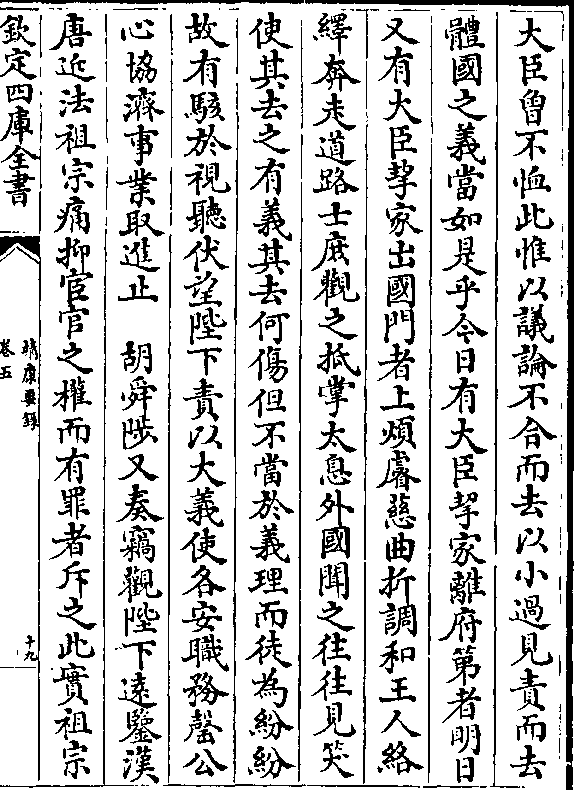 大臣曾不恤此惟以議論不合而去以小過見責而去
體國之義當如是乎今日有大臣挈家離府第者明日
又有大臣挈家出國門者上煩睿慈曲折調和王人絡
繹奔走道路士庶觀之扺掌太息外國聞之往往見笑
使其去之有義其去何傷但不當於義理而徒為紛紛
故有駭於視聽伏望陛下責以大義使各安職務罄公
心協濟事業取進止　胡舜陟又奏竊觀陛下遠鑒漢
唐近法祖宗痛抑宦官之權而有罪者斥之此實祖宗
欽定四庫全書
靖康要錄
卷五
十九